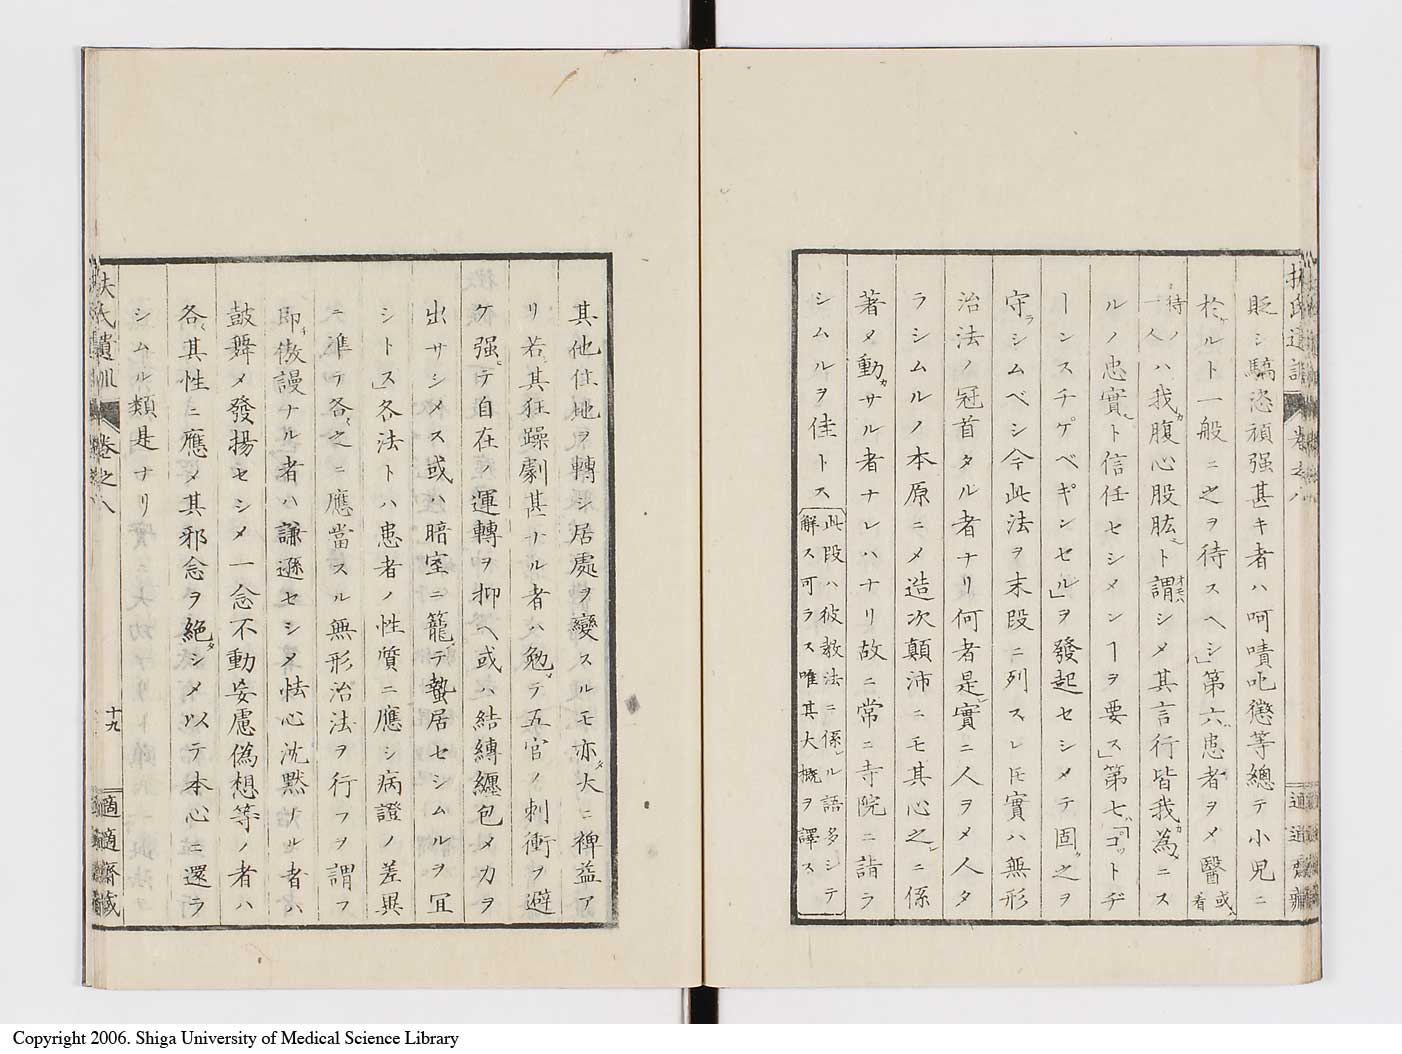 貶シ驕恣頑强甚キ者ハ呵嘖叱懲等總テ小児ニ
於ルト一般ニ之ヲ待スヘシ」第六患者ヲメ醫或ハ看
待ノ一人ハ我カ腹心股肱ト謂シメ其言行皆我カ為ニス
ルノ忠實ト信任セシメンヿヲ要ス」第七「ゴットヂ
ーンスチゲベギンセル」ヲ發起セシメテ固ク之ヲ
守ラシムベシ今此法ヲ末段ニ列スレ𪜈實ハ無形
治法ノ冠首タル者ナリ何者是レ實ニ人ヲメ人タ
ラシムルノ本原ニメ造次顛沛ニモ其心之レニ係
著メ動カサル者ナレハナリ故ニ常ニ寺院ニ詣ラ
シムルヲ佳トス此段ハ彼教法ニ係ル語多シテ
解ス可ラス唯其大概ヲ譯ス
其他住地ヲ轉シ居處ヲ變スルモ亦タ大ニ裨益ア
リ若シ其狂躁劇甚ナル者ハ勉テ五官ノ刺衝ヲ避
ケ强テ自在ノ運轉ヲ抑ヘ或ハ結縛纏包メ力ヲ
出サシメス或ハ暗室ニ籠テ蟄居セシムルヲ冝
シトス」各法トハ患者ノ性質ニ應シ病證ノ差異
ニ準テ各々之ニ應當スル無形治法ヲ行フヲ謂フ
即傲謾ナル者ハ謙遜セシメ怯心沈黙ナル者ハ
鼓舞メ發揚セシメ一念不動妄慮偽想等ノ者ハ
各々其性ニ應メ其邪念ヲ絶タシメ以テ本心ニ還ラ
シムル類是ナリ
扶氏遺訓 卷之八 十九 適適齋藏